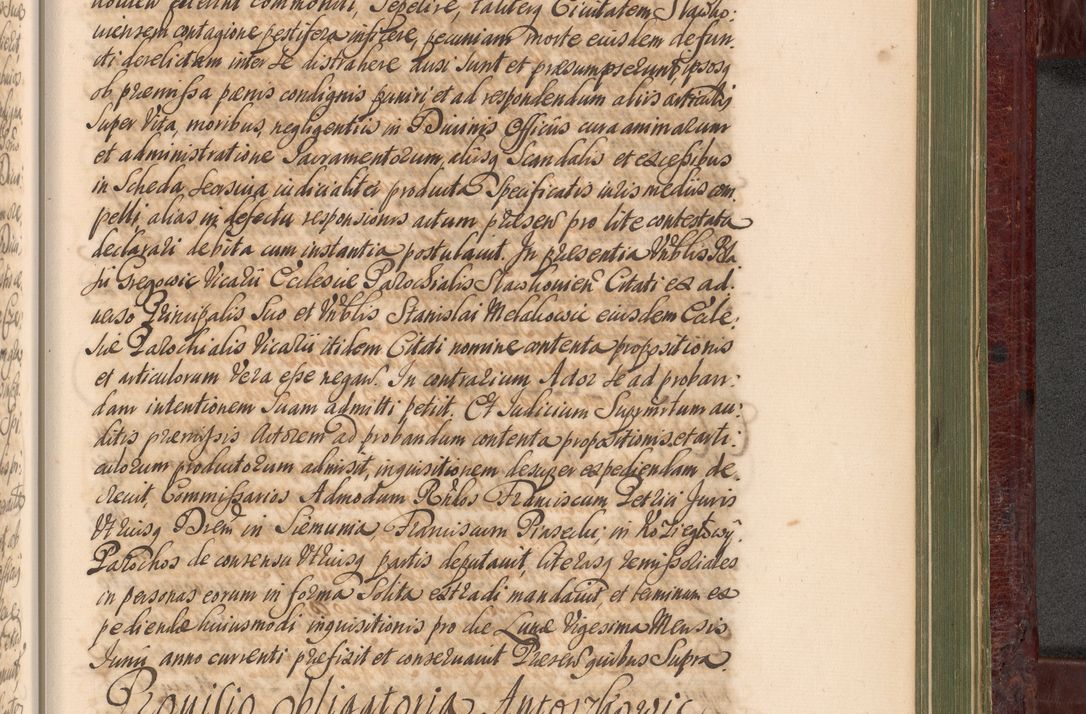 commondi, Sepelire, taliterq Civitatem Slawko:
viensem contagione pestifera inficere, pecuniam morte eiusdem defun:
cti derelictam inter Se distrahere ausi Sunt et præsumpserunt ipsosq
ob præmissa pænis condignis puniri, et ad respondendum aliis articulis
Super Vita, moribus, negligentiis in Divinis Officiis cura animarum
et administratione Sacramentorum, aliisq Scandalis et excessibus
in Scheda Seorsiva iudicialiter producta Specificatis iuris mediis com
pelli, alias in defectu responsionis actum præsens pro lite contestata
declarari debita cum instantia postulavit. In præsentia Vnblis Bla
sii Gregorsic Vicarii Ecclesiæ Parochialis Slawkovien Citati ex ad:
verso Principalis Suo et Vnblis Stanislai Melchiorsic eiusdem Eccle:
siæ Parochialis Vicarii itidem Citati nomine contenta propositionis
et articulorum Vera esse negavit. In contrarium Actor Se ad proban:
dam intentionem Suam admitti petiit. Et Iudicium Suprmtum au:
ditis præmissis Actorem ad probandum contenta propositionis et arti:
culorum productorum admisit, inquisitionem desuper expediendam de:
crevit, Commissarios Admodum Rndos Franciscum Petria Juris
Vtriusq Drem in Siemunia, Franciscum Pinselii in Kozieglowy
Parochos de consensu Vtriusq partis deputavit, literasq remissoriales
in personas eorum in forma Solita extradi mandavit, et terminum ex
pediendæ huiusmodi inquisitionis pro die Lunæ Vigesima Mensis
Junii anno currenti præfixit et conservavit Præsen quibus Supra.
Provisio obligatoria Antoszkowic